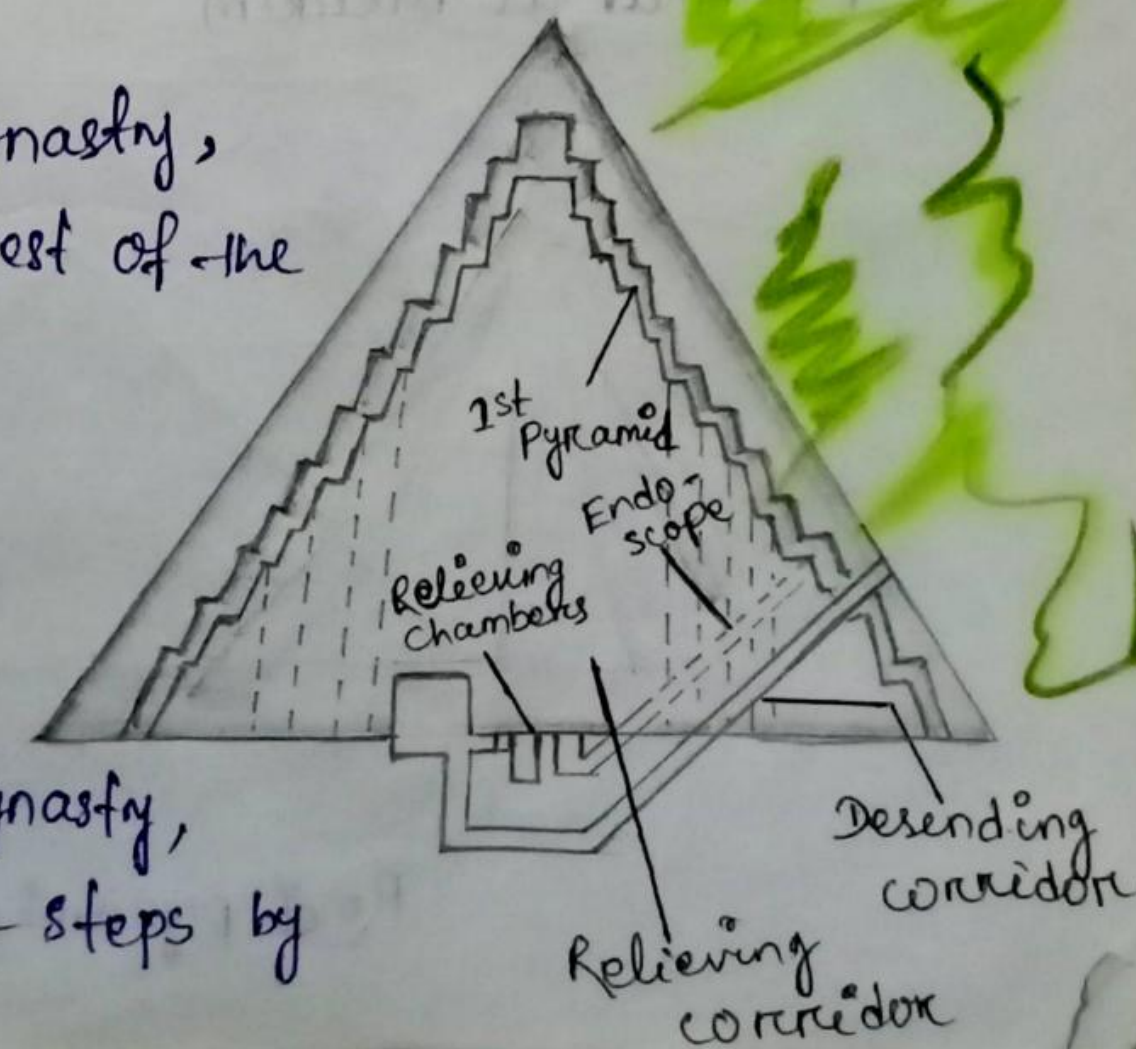 nastry,
est of the
1st
Pyramid
Endo-
scope
Relieving
chambers
nastry,
steps by
Desending
corridor
Relieving
corridor